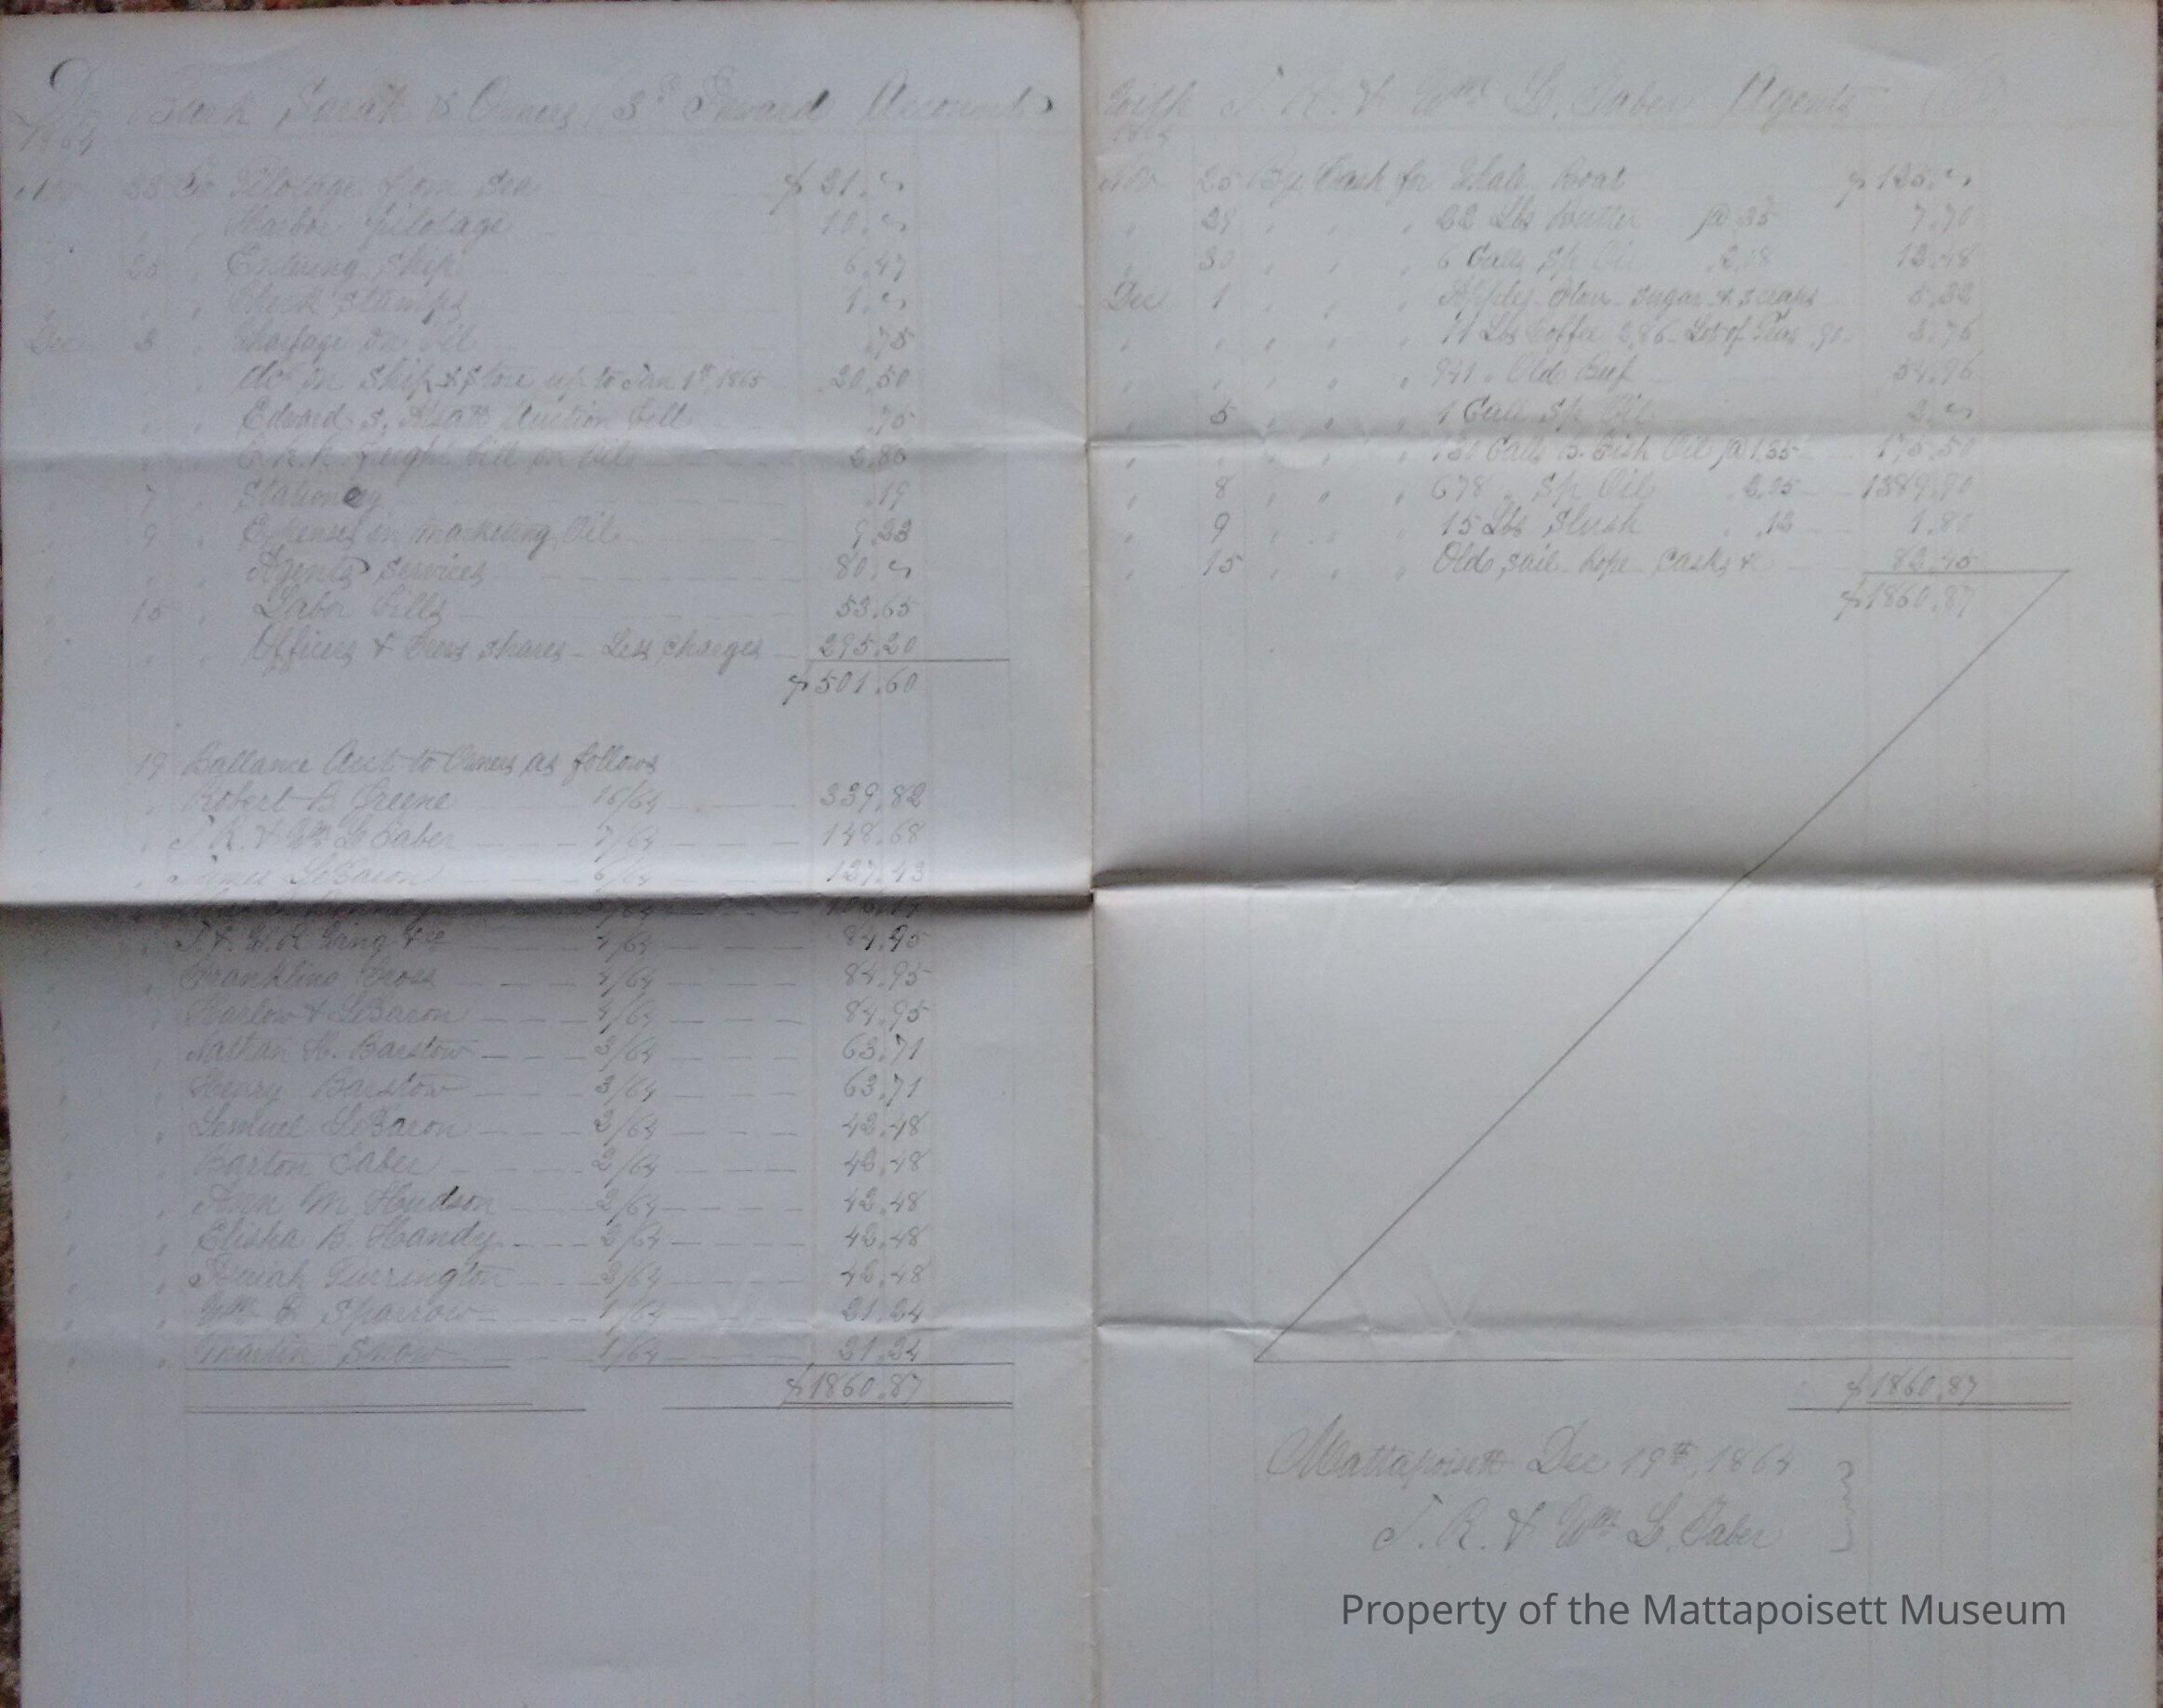 Dr Bark Sarah & Owners, 3d Inward Accounts
1864
Nov 23 To Pilotage from Sea $ 21."
" " " Harbor pilotage 10."
" 25 " Entering Ship 6.47
" " " Check Stamps 1."
Dec 3 " Wharfage on Oil .75
" " " do on Ship & Store up to Jan 1st, 1865 20.50
" " " Edward S. Auction bill .75
" " " R.R. Freight bill on Oil 2.86
" 7 " Stationery .19
" 9 " Expenses on marketing Oil 9.23
" " " Agents Services 80."
" 15 " Labor bills 53.65
" " " Officers & Crews shares - Less charges 295.20
$501.60
19 Ballance Due to Owners as follows
" " Robert B. Greene 16/64 339.82
" " J. R. & Wm L. Taber 7/64 148.68
" " James LeBaron 6/64 127.43
5/64
" " J. & W. R. Wing & Co 4/64 84.95
" " Franklin Cross 4/64 84.95
" " Barlow & LeBaron 4/64 84.95
" " Nathan H. Barstow 3/64 63.71
" " Henry Barstow 3/64 63.71
" " Lemuel LeBaron 2/64 42.48
" " Barton Taber 2/64 42.48
" " Ann M Hudson 2/64 42.48
" " Elisha B. Handy 2/64 42.48
" " Purrington 2/64 42.48
" " Wm Sparrow 1/64 21.24
" " Martin Snow 1/64 21.24
$1860.87
With J. R. & Wm L. Taber Agents Cr
1864
Nov 25 By Cash for Whale Boat $125."
" 29 " " " 22 Lbs Butter @ 35 7.70
" 30 " " " 6 Galls Sp Oil 2.08 12.48
Dec 1 " " " Apples flour sugar & scraps 5.32
" " " " " 11 Lbs Coffee 2.86 Lot of Peas .90 3.76
" " " " " 941 " Old Beef 54.96
" 5 " " " 1 Gall Sp Oil 2."
" " " " " 130 Galls B. Fish Oil @ 1.35 175.50
" 8 " " " 678 " Sp Oil 2.05 1389.90
" 9 " " " 15 Lbs Slush .12 1.80
" 15 " " " Old sail rope Casks & 82.45
$1860.87
$1860.87
Mattapoisett Dec 19th, 1864
J. R. & Wm L. Taber
Property of the Mattapoisett Museum